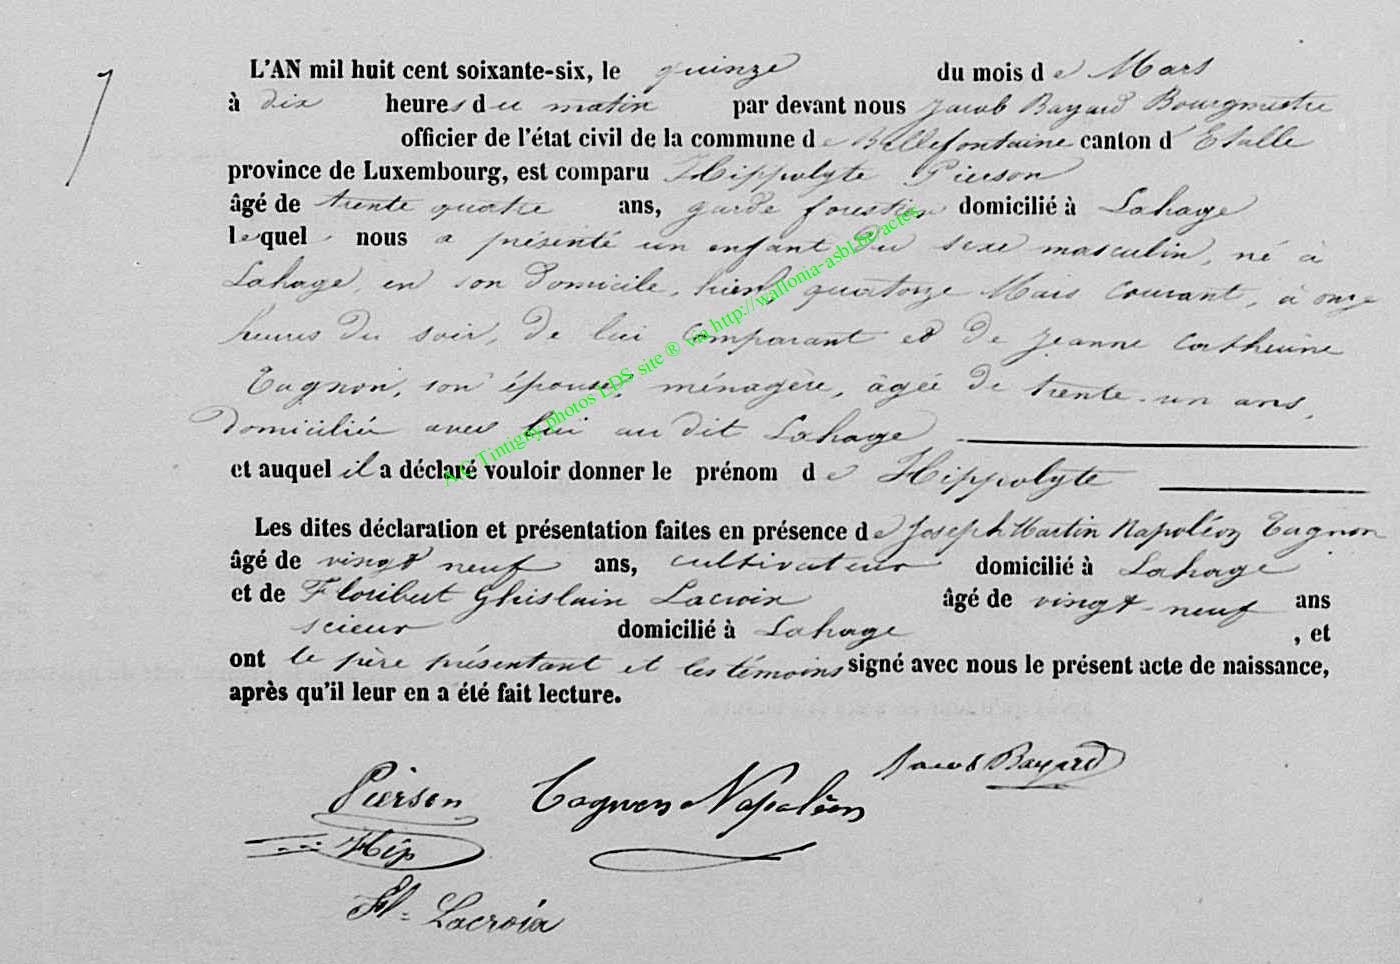 7
L'AN mil huit cent soixante-six, le quinze du mois de Mars
à dix heures du matin par devant nous Jacob Bayard Bourgmestre
officier de l'état civil de la commune de Bellefontaine canton d'Etalle
province de Luxembourg, est comparu Hippolyte Pierson
âgé de trente quatre ans, garde forestier domicilié à Lahage
lequel nous a présenté un enfant du sexe masculin, né à
Lahage, en son domicile, hier, quatorze Mars courant, à onze
heures du soir, de lui comparant et de Jeanne Catherine
Tagnon, son épouse, ménagère, âgée de trente-un ans,
domiciliée avec lui au dit Lahage
et auquel il a déclaré vouloir donner le prénom de Hippolyte
Les dites déclaration et présentation faites en présence de Joseph Martin Napoléon Tagnon
âgé de vingt neuf ans, cultivateur domicilié à Lahage
et de Floribert Ghislain Lacroix âgé de vingt-neuf ans
scieur domicilié à Lahage , et
ont le père présentant et les témoins signé avec nous le présent acte de naissance,
après qu'il leur en a été fait lecture.
Jacob Bayard
Pierson Tagnon Napoléon
Hip
Fl. Lacroix
A.C Tintigny photos EDS site ® via http://wallonia-asbl.be/actes